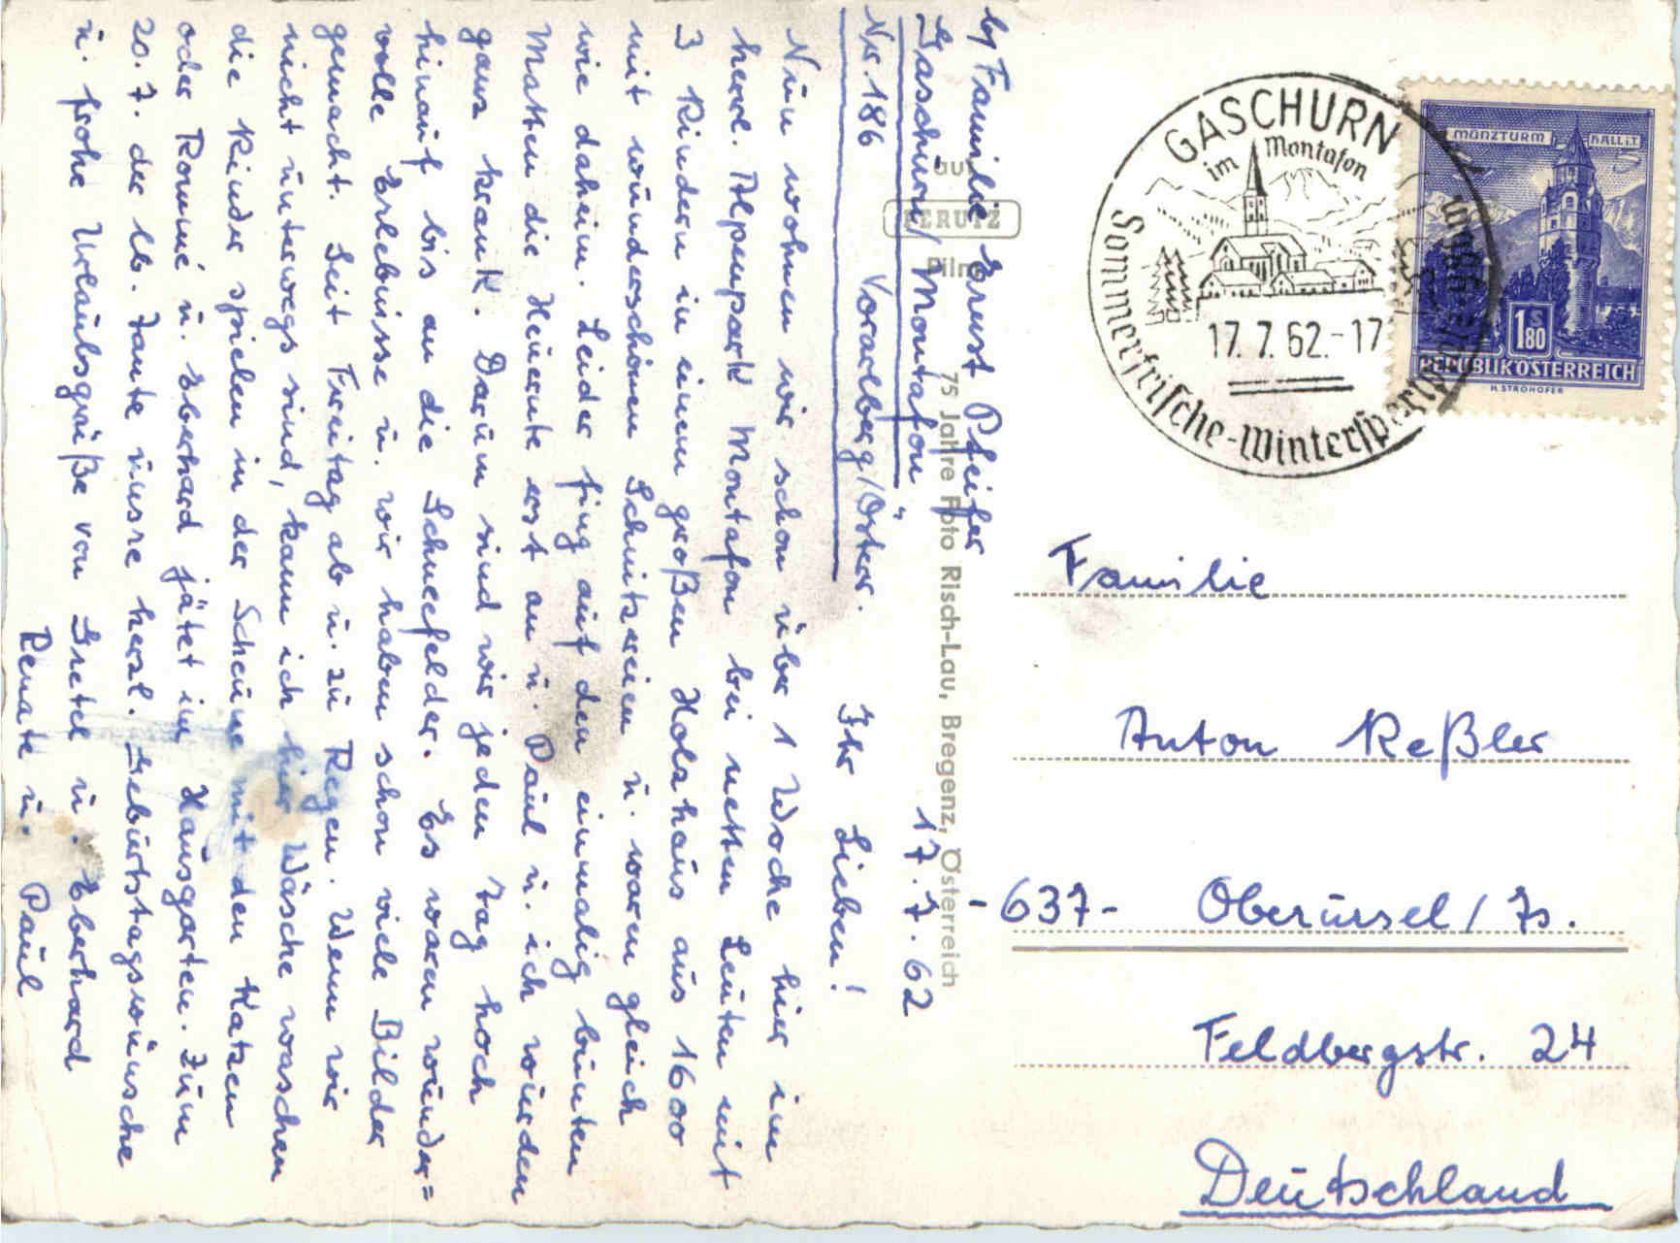 by Familie Ernst Pfeifer
Gaschurn/Montafon 17.7.62
Nr. 186 Vorarlberg/Österr.
Ihr Lieben!
Nun wohnen wir schon über 1 Woche hier im
herrl. Alpenpark Montafon bei netten Leuten mit
3 Kindern in einem großen Holzhaus aus 1600
mit wunderschönen Schnitzereien u. waren gleich
wie daheim. Leider fing auf den einmalig bunten
Matten die Heuernte erst an u. Paul u. ich wurden
ganz krank. Darum sind wir jeden Tag hoch
hinauf bis an die Schneefelder. Es waren wunder=
volle Erlebnisse u. wir haben schon viele Bilder
gemacht. Seit Freitag ab u. zu Regen. Wenn wir
nicht unterwegs sind, kann ich hier Wäsche waschen
die Kinder spielen in der Scheune mit den Katzen
oder Rommé u. Eberhard jätet im Hausgarten. Zum
20.7. der lb. Tante unsre herzl. Geburtstagswünsche
u. frohe Urlaubsgrüße von Gretel u. Eberhard
Renate u. Paul
auf
PERUTZ
Film
75 Jahre Foto Risch-Lau, Bregenz, Österreich
GASCHURN
im Montafon
17.7.62.-17
Sommerfrische-Wintersport
MÜNZTURM HALL i.T.
1S80
REPUBLIK ÖSTERREICH
H. STROHOFER
Familie
Anton Reßler
-637- Oberursel/Ts.
Feldbergstr. 24
Deutschland